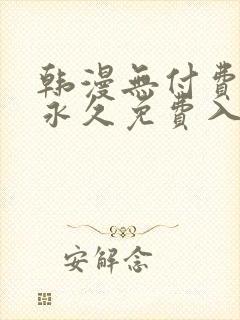 韩漫無付費
永久免費入
安解念